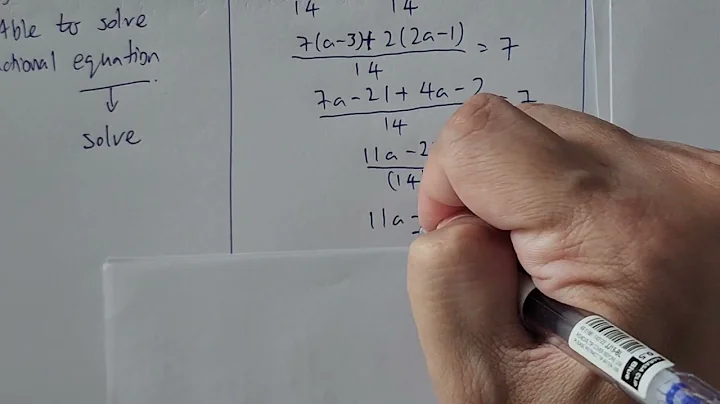 Able to solve
ctional equation
solve
14 14
7(a-3)+2(2a-1)
= 7
14
7a-21+4a-2
= 7
14
11a-2
(14
11a-
0.5
Blue